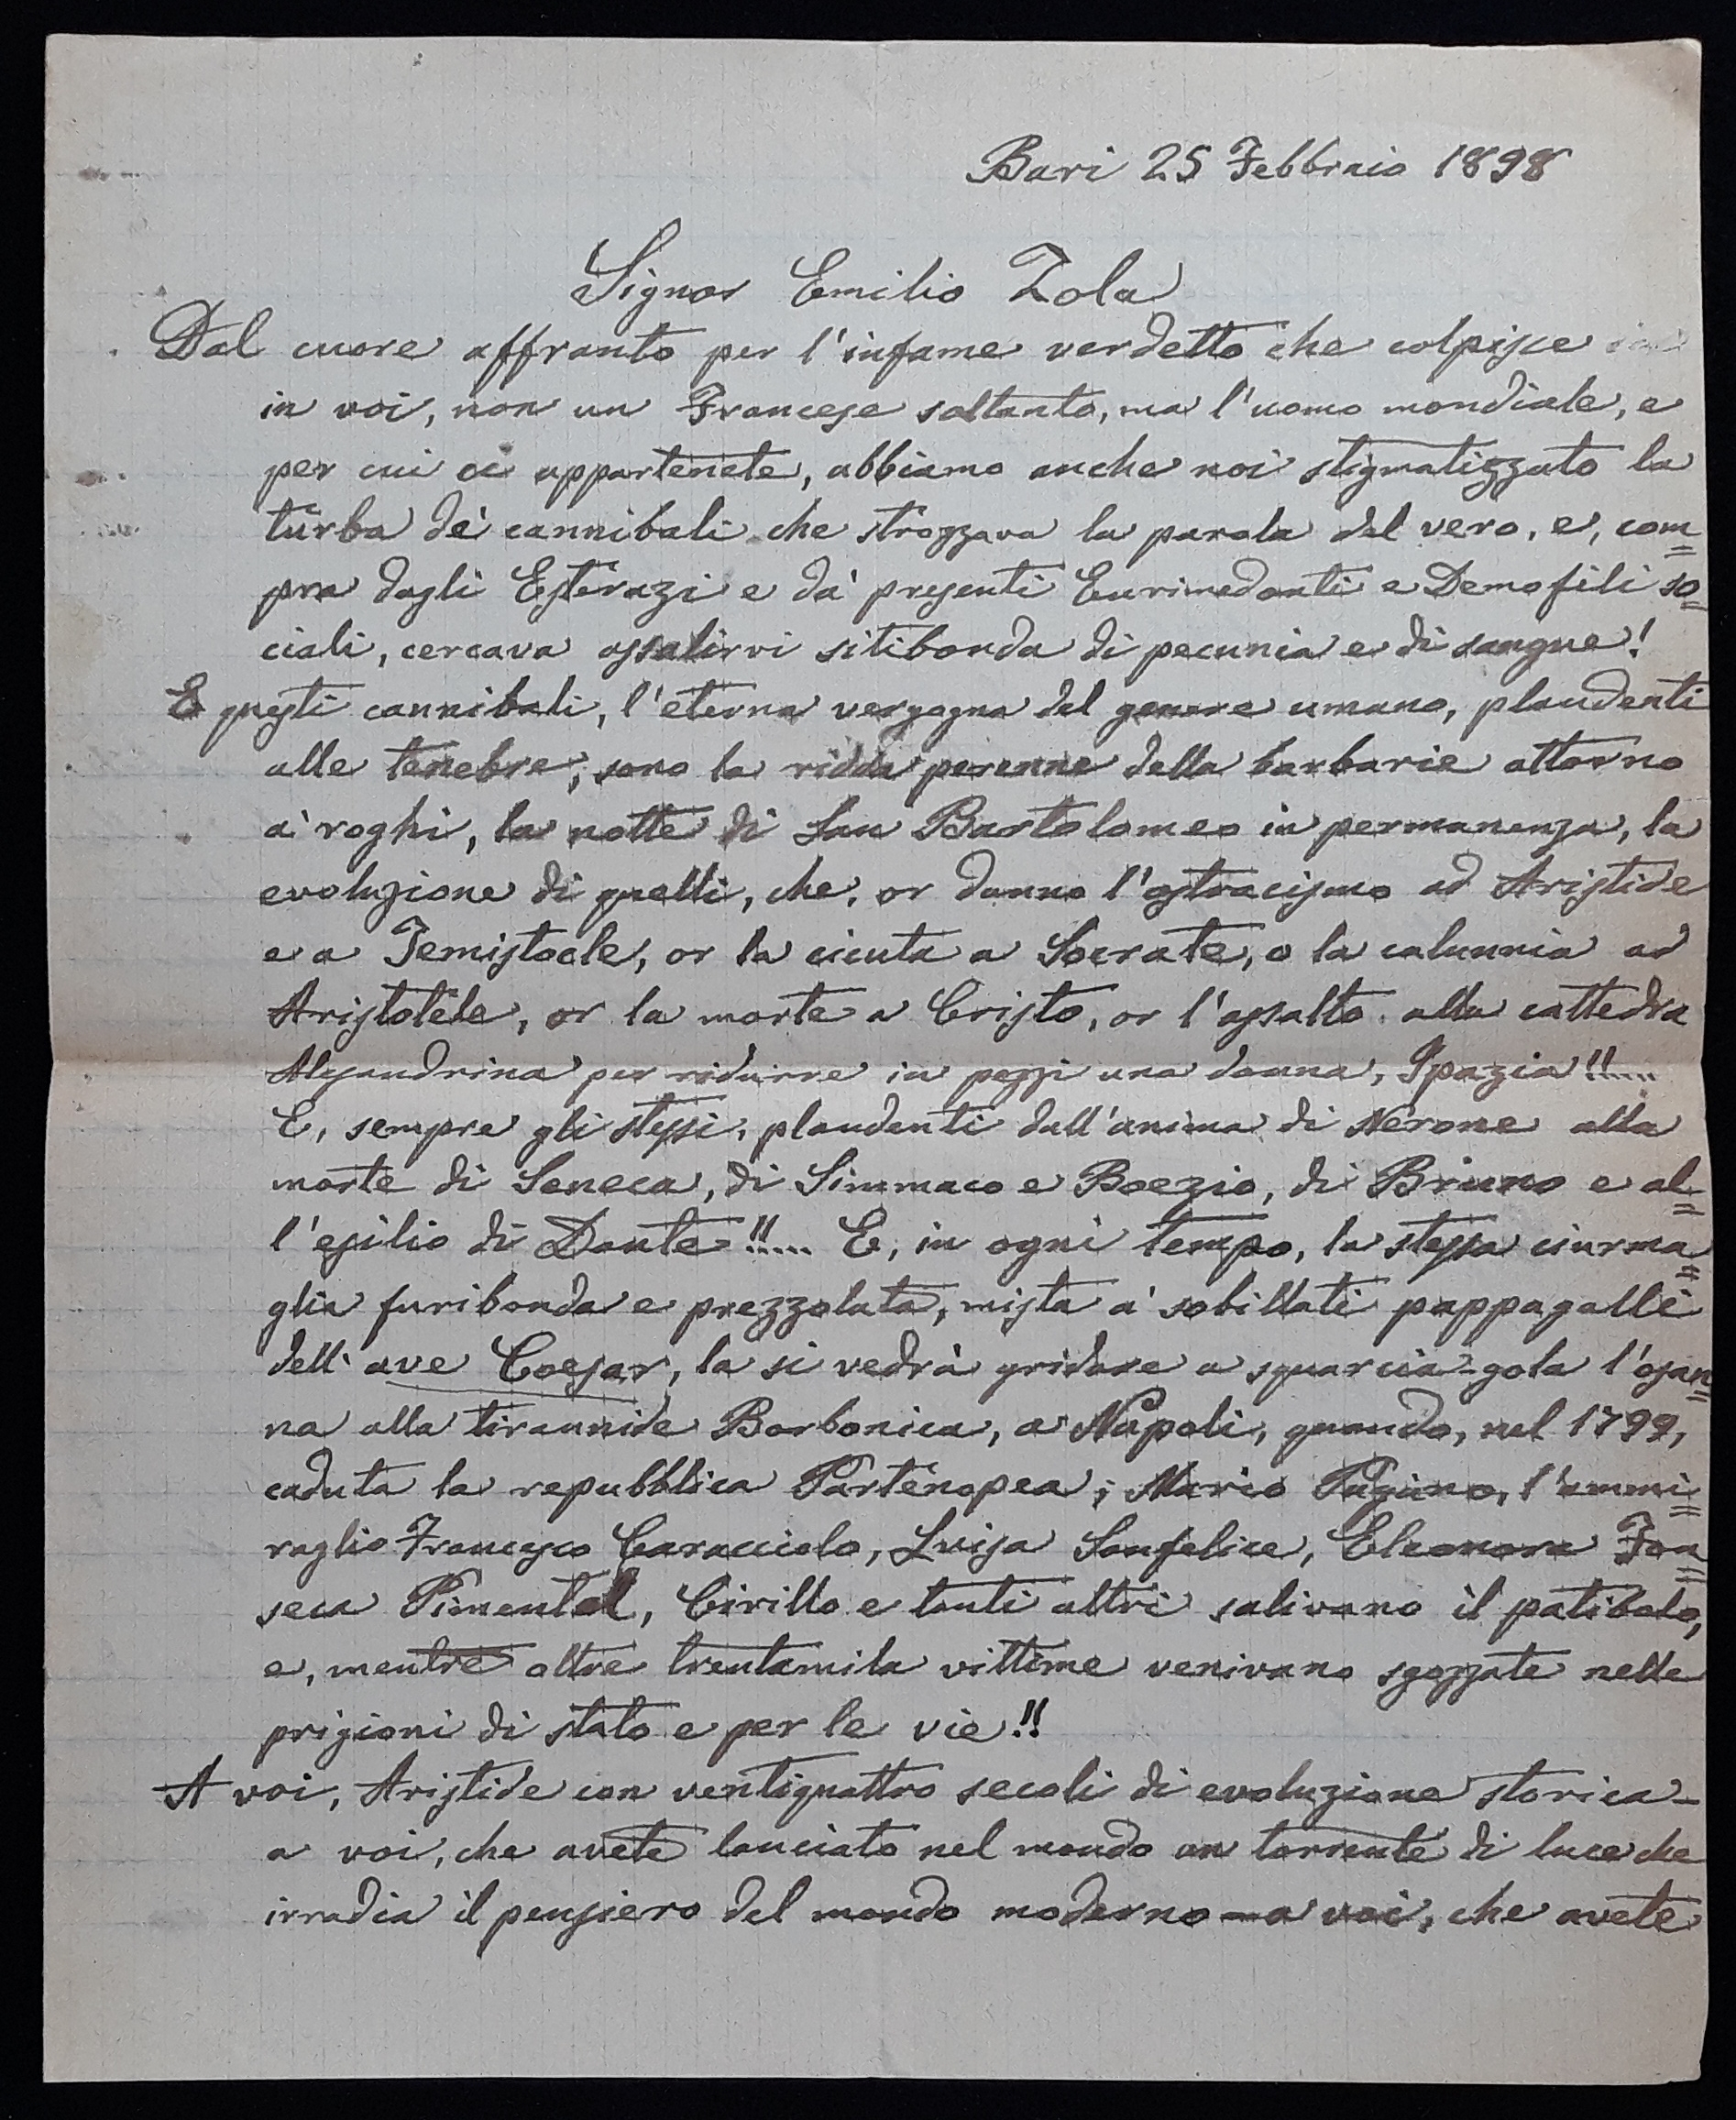 Bari 25 Febbraio 1898
Signor Emilio Zola
Dal cuore affranto per l'infame verdetto che colpisce
in voi, non un Francese soltanto, ma l'uomo mondiale, e
per cui ci appartenete, abbiamo anche noi stigmatizzato la
turba de' cannibali che strozzava la parola del vero, e, com=
pra dagli Esterazi e da' presenti Eurimedonti e Demofili so=
ciali, cercava assalirvi sitibonda di pecunia e di sangue!
E questi cannibali, l'eterna vergogna del genere umano, plaudenti
alle tenebre, sono la ridda perenne della barbarie attorno
a' roghi, la notte di San Bartolomeo in permanenza, la
evoluzione di quelli, che, or danno l'ostracismo ad Aristide
e a Temistocle, or la cicuta a Socrate, o la calunnia ad
Aristotele, or la morte a Cristo, or l'assalto alla cattedra
Alesandrina per ridurre in pezzi una donna, Ipazia!!.....
E, sempre gli stessi, plaudenti dall'anima di Nerone alla
morte di Seneca, di Simmaco e Boezio, di Bruno e al=
l'esilio di Dante!!..... E, in ogni tempo, la stessa ciurma=
glia furibonda e prezzolata, mista a' sobillati pappagalli
dell'ave Coesar, la si vedrà gridare a squarcia-gola l'osan=
na alla tirannide Borbonica, a Napoli, quando, nel 1799,
caduta la repubblica Partenopea; Mario Pagano, l'ammi=
raglio Francesco Caracciolo, Luisa Sanfelice, Eleonora Fon=
seca Pimental, Cirillo e tanti altri salivano il patibolo,
e, mentre altre trentamila vittime venivano sgozzate nelle
prigioni di stato e per le vie!!
A voi, Aristide con ventiquattro secoli di evoluzione storica-
a voi, che avete lanciato nel mondo un torrente di luce che
irradia il pensiero del mondo moderno - a voi, che avete